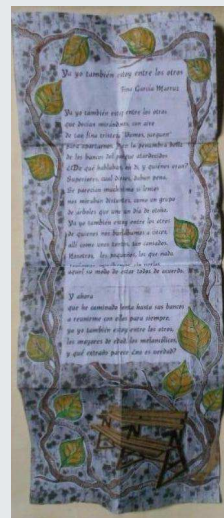 Ya yo también estoy entre los otros
Fina García Marruz
Ya yo también estoy entre los otros
que decían mirándonos, con aire
de tan fina tristeza "Vamos, jueguen"
para apartarnos. Y en la penumbra bella
de los bancos del parque atardecidos
¿De qué hablaban, oh di, y quiénes eran?
Superiores, cual dioses, daban pena.
Se parecían muchísimo al lejos
nos miraban distantes, como un grupo
de árboles que une un día de otoño.
Ya yo también estoy entre los otros
de quienes nos burlábamos a veces
allí como unos tontos, tan cansados.
Nosotros, los pequeños, los que nada
aquel su modo de estar todos de acuerdo.
Y ahora
que he caminado lenta hasta sus bancos
a reunirme con ellos para siempre,
ya yo también estoy entre los otros,
los mayores de edad, los melancólicos,
y qué extraño parece ¿no es verdad?